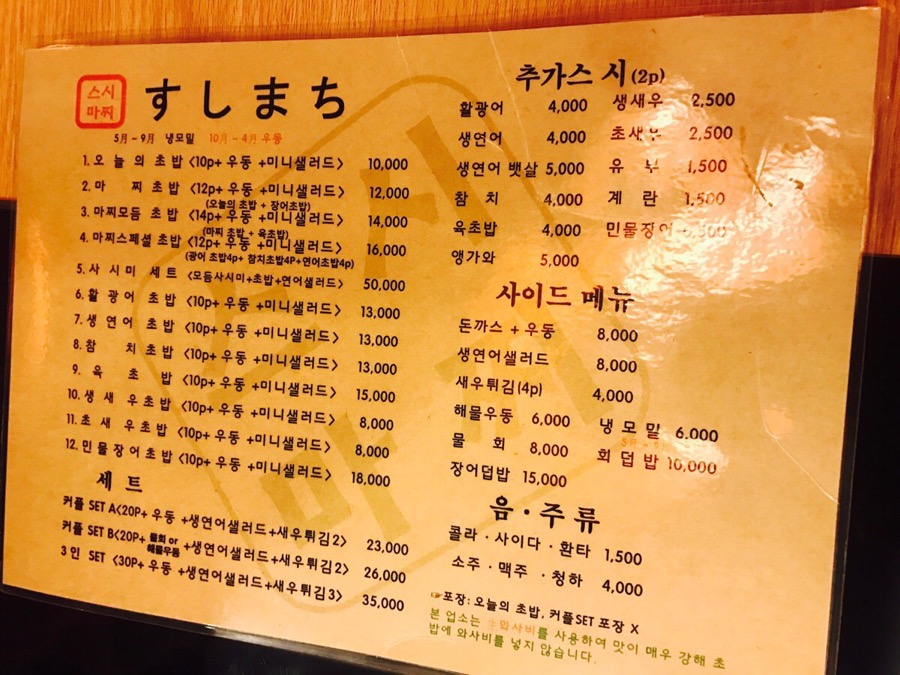 스시
마찌
すしまち
5月~9月 냉모밀 10月~4月 우동
1. 오늘의 초밥 <10p+ 우동 +미니샐러드> 10,000
2. 마 찌 초밥 <12p+ 우동 +미니샐러드> 12,000
(오늘의 초밥 + 장어초밥)
3. 마찌모듬 초밥 <14p+ 우동 +미니샐러드> 14,000
(마찌 초밥 + 육초밥)
4. 마찌스페셜 초밥 <12p+ 우동 +미니샐러드> 16,000
(광어 초밥4p+ 참치초밥4P+연어초밥4p)
5. 사시미 세트 <모듬사시미+초밥+연어샐러드> 50,000
6. 활광어 초밥 <10p+ 우동 +미니샐러드> 13,000
7. 생연어 초밥 <10p+ 우동 +미니샐러드> 13,000
8. 참 치초밥 <10p+ 우동 +미니샐러드> 13,000
9. 육 초 밥 <10p+ 우동 +미니샐러드> 15,000
10. 생새우초밥 <10p+ 우동 +미니샐러드> 8,000
11. 초새우초밥 <10p+ 우동 +미니샐러드> 8,000
12. 민물장어초밥 <10p+ 우동 +미니샐러드> 18,000
세트
커플 SET A<20P+ 우동 +생연어샐러드+새우튀김2> 23,000
커플 SET B<20P+ 물회 or 해물우동 +생연어샐러드+새우튀김2> 26,000
3인 SET <30P+ 우동 +생연어샐러드+새우튀김3> 35,000
추가스시(2p)
활광어 4,000 생새우 2,500
생연어 4,000 초새우 2,500
생연어 뱃살 5,000 유 부 1,500
참 치 4,000 계 란 1,500
육초밥 4,000 민물장어
앵가와 5,000
사이드 메뉴
돈까스 + 우동 8,000
생연어샐러드 8,000
새우튀김(4p) 4,000
해물우동 6,000 냉모밀 6,000
물 회 8,000 회덥밥 10,000
장어덥밥 15,000
음·주류
콜라·사이다·환타 1,500
소주·맥주·청하 4,000
☞포장: 오늘의 초밥, 커플SET 포장 X
본 업소는 生와사비를 사용하여 맛이 매우 강해 초
밥에 와사비를 넣지 않습니다.